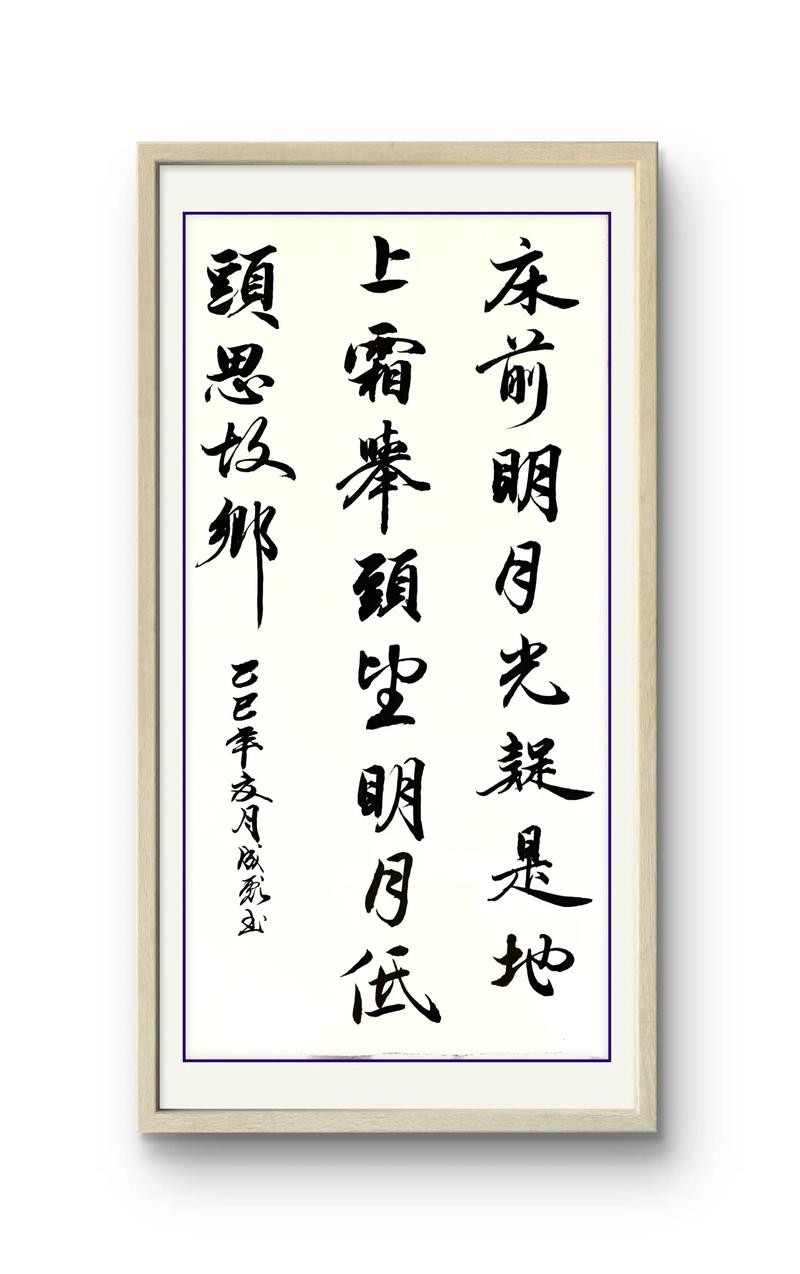 床前明月光疑是地
上霜舉頭望明月低
頭思故鄉
乙巳年夏月成书